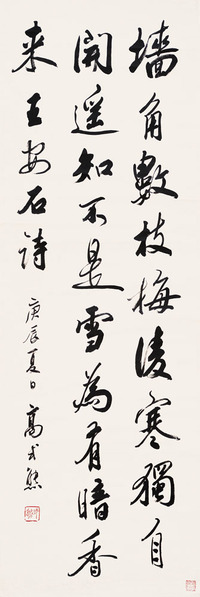 墙角數枝梅凌寒獨自
開遥知不是雪為有暗香
来王安石詩
庚辰夏日高式熊